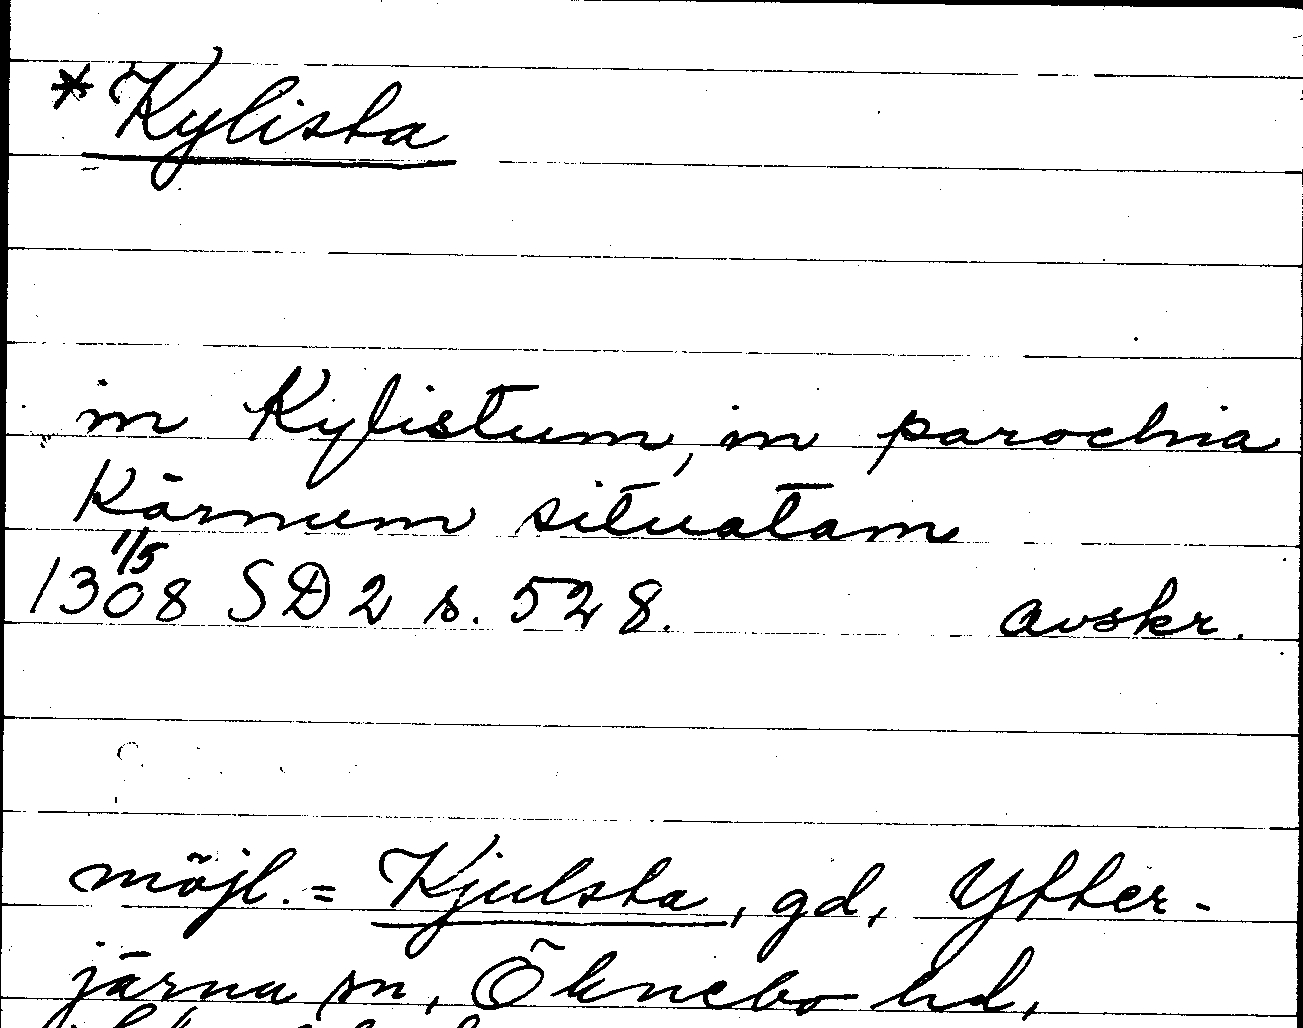 *Kylista
in Kylistum, in parochia
Kärnum situatam
1/5
1308 SD 2 s. 528. avskr.
möjl. = Kjulsta, gd, Ytter-
järna sn, Öknebo hd,